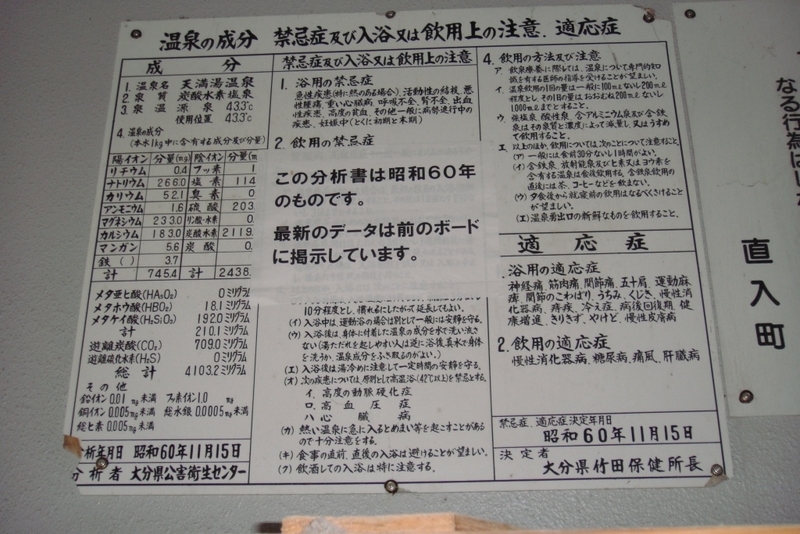 温泉の成分 禁忌症及び入浴又は飲用上の注意.適応症
成 分
1. 温泉名 天満湯温泉
2. 泉質 炭酸水素塩泉
3. 泉温 源泉 43.3℃
使用位置 43.3℃
4. 温泉の成分
(本水1kg中に含有する成分及び分量)
陽イオン 分量(mg) 陰イオン 分量(m
リチウム 0.4 フッ素 1
ナトリウム 266.0 塩素 114
カリウム 52.1 臭素 0
アンモニウム 1.8 硫酸 203.
マグネシウム 233.0 リン酸水素 0.
カルシウム 183.0 炭酸水素 2119.
マンガン 5.6 炭酸 0.
鉄( ) 3.7
計 745.4 計 2438.
メタ亜ヒ酸(HAsO₂) 0ミリグラム
メタホウ酸(HBO₂) 18.1ミリグラム
メタケイ酸(H₂SiO₃) 192.0ミリグラム
計 210.1ミリグラム
遊離炭酸(CO₂) 709.0ミリグラム
遊離硫化水素(H₂S) 0ミリグラム
総計 4103.2ミリグラム
その他
鉛イオン0.01mg未満
銅イオン0.005mg未満 総水銀0.0005mg未満
総ヒ素0.005mg未満
析年月日 昭和60年11月15日
分析者 大分県公害衛生センター
禁忌症及び入浴又は飲用上の注意
1. 浴用の禁忌症
急性疾患(特に熱のある場合),活動性の結核,悪
性腫瘍,重い心臓病,呼吸不全,腎不全,出血
性疾患,高度の貧血,その他一般に病勢進行中の
疾患,妊娠中(とくに初期と末期)
2. 飲用の禁忌症
この分析書は昭和60年
のものです。
最新のデータは前のボード
に掲示しています。
10分程度とし,慣れるにしたがって延長してもよい。
(イ) 入浴中は,運動浴の場合は別として一般には安静を守る。
(ウ) 入浴後は,身体に付着した温泉の成分を水で洗い流さ
ない(湯ただれを起しやすい人は逆に浴後真水で身体
を洗うか,温泉成分をふき取るのがよい。)
(エ) 入浴後は湯冷めに注意して一定時間の安静を守る。
(オ) 次の疾患については,原則として高温浴(42℃以上)を禁忌とする。
イ. 高度の動脈硬化症
ロ. 高血圧症
ハ. 心臓病
(カ) 熱い温泉に急に入るとめまい等を起こすことがある
ので十分注意をする。
(キ) 食事の直前,直後の入浴は避けることが望ましい。
(ク) 飲酒しての入浴は特に注意する。
4. 飲用の方法及び注意
ア 飲泉療養に際しては,温泉について専門的知
識を有する医師の指導を受けることが望ましい。
イ 温泉飲用の1回の量は一般に100mLないし200mL
程度とし,その1日の量はおおむね200mLないし
1,000mLまでとすること。
ウ 強塩泉,酸性泉,含アルミニウム泉及び含鉄
泉はその泉質と濃度によって減量し,又はうすめ
て飲用すること。
エ 以上のほか,飲用については次のことについて注意すること。
(ア) 一般には食前30分ないし1時間がよい。
(イ) 含鉄泉,放射能泉及びヒ素又はヨウ素を
含有する温泉は食後飲用する。含鉄泉飲用の
直後には茶,コーヒーなどを飲まない。
(ウ) 夕食後から就寝前の飲用はなるべくさけること
が望ましい。
(エ) 温泉湧出口の新鮮なものを飲用すること。
適応症
1. 浴用の適応症
神経痛,筋肉痛,関節痛,五十肩,運動麻
痺,関節のこわばり,うちみ,くじき,慢性消
化器病,痔疾,冷え症,病後回復期,健
康増進,きりきず,やけど,慢性皮膚病
2. 飲用の適応症
慢性消化器病,糖尿病,痛風,肝臓病
禁忌症,適応症決定年月日
昭和60年11月15日
決定者
大分県竹田保健所長
なる行為はし
直入町